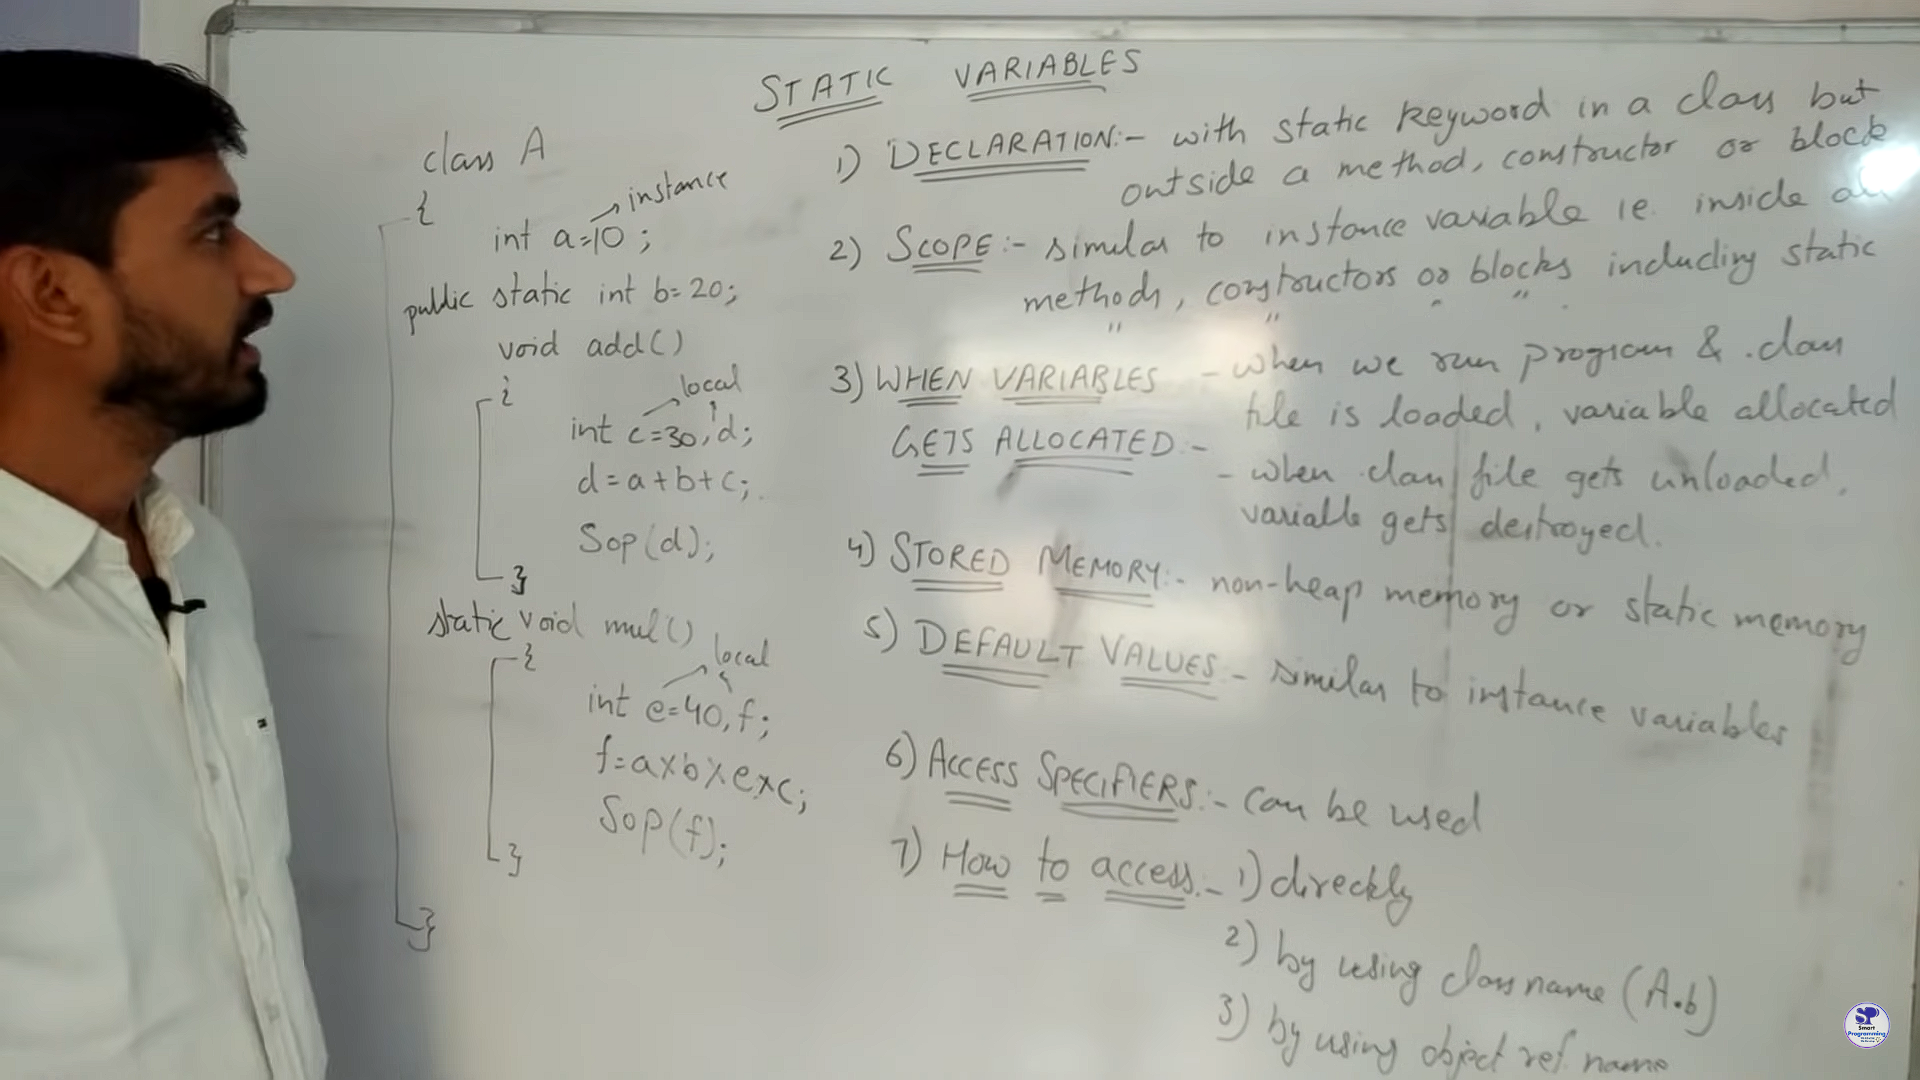 STATIC VARIABLES
class A
{
int a=10; → instance
public static int b=20;
void add()
{
local
int c=30, d;
d=a+b+c;
Sop(d);
}
static void mul()
{
local
int e=40, f;
f=a×b×e×c;
Sop(f);
}
}
1) DECLARATION:- with static keyword in a class but
outside a method, constructor or block
2) SCOPE:- similar to instance variable ie. inside all
methods, constructors or blocks including static
" " " "
3) WHEN VARIABLES - when we run program & .class
GETS ALLOCATED:- file is loaded, variable allocated
- when .class file gets unloaded,
variable gets destroyed.
4) STORED MEMORY:- non-heap memory or static memory
5) DEFAULT VALUES:- similar to instance variables
6) ACCESS SPECIFIERS:- can be used
7) How to access:- 1) directly
2) by using class name (A.b)
3) by using object ref. name
SP
Smart
Programming